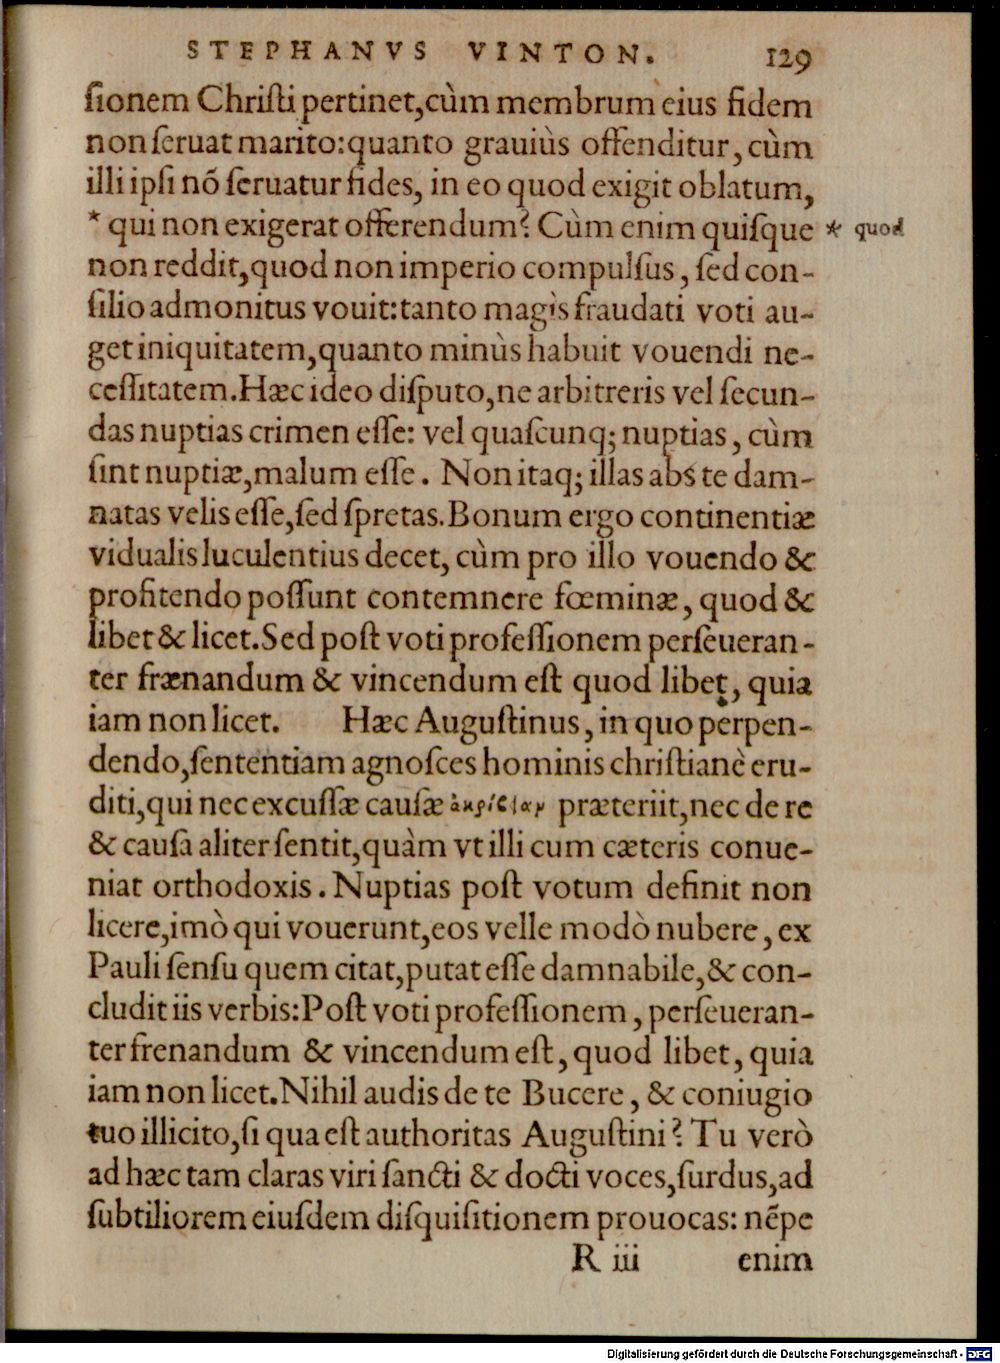 STEPHANVS VINTON. 129
ſionem Chriſti pertinet,cùm membrum eius fidem
non ſeruat marito:quanto grauiùs offenditur,cùm
illi ipſi nō ſeruatur fides, in eo quod exigit oblatum,
* qui non exigerat offerendum? Cùm enim quiſque * quod
non reddit,quod non imperio compulſus, ſed con-
ſilio admonitus vouit:tanto magìs fraudati voti au-
get iniquitatem,quanto minùs habuit vouendi ne-
ceſſitatem.Hæc ideo diſputo,ne arbitreris vel ſecun-
das nuptias crimen eſſe: vel quaſcunq; nuptias, cùm
ſint nuptiæ,malum eſſe. Non itaq; illas abs te dam-
natas velis eſſe,ſed ſpretas.Bonum ergo continentiæ
vidualis luculentius decet, cùm pro illo vouendo &
profitendo poſſunt contemnere fœminæ, quod &
libet & licet.Sed poſt voti profeſſionem perſeueran-
ter frænandum & vincendum eſt quod libet, quia
iam non licet. Hæc Auguſtinus, in quo perpen-
dendo,ſententiam agnoſces hominis chriſtianè eru-
diti,qui nec excuſſæ cauſæ ἀκρίϐειαν præteriit,nec de re
& cauſa aliter ſentit,quàm vt illi cum cæteris conue-
niat orthodoxis. Nuptias poſt votum definit non
licere,imò qui vouerunt,eos velle modò nubere, ex
Pauli ſenſu quem citat,putat eſſe damnabile,& con-
cludit iis verbis:Poſt voti profeſſionem, perſeueran-
ter frenandum & vincendum eſt, quod libet, quia
iam non licet.Nihil audis de te Bucere, & coniugio
tuo illicito,ſi qua eſt authoritas Auguſtini? Tu verò
ad hæc tam claras viri ſancti & docti voces,ſurdus,ad
ſubtiliorem eiuſdem diſquiſitionem prouocas: nēpe
R iii enim
Digitalisierung gefördert durch die Deutsche Forschungsgemeinschaft - DFG